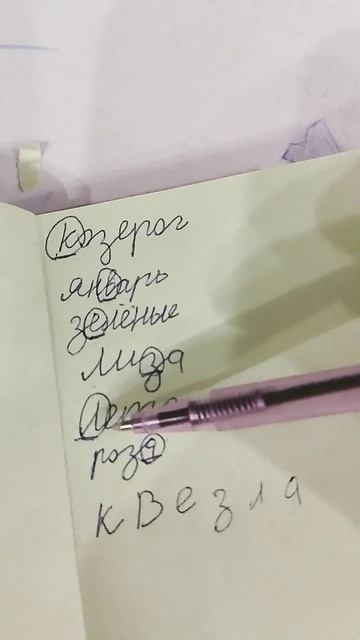 козерог
январь
зелёные
лиза
роза
к В е з л а